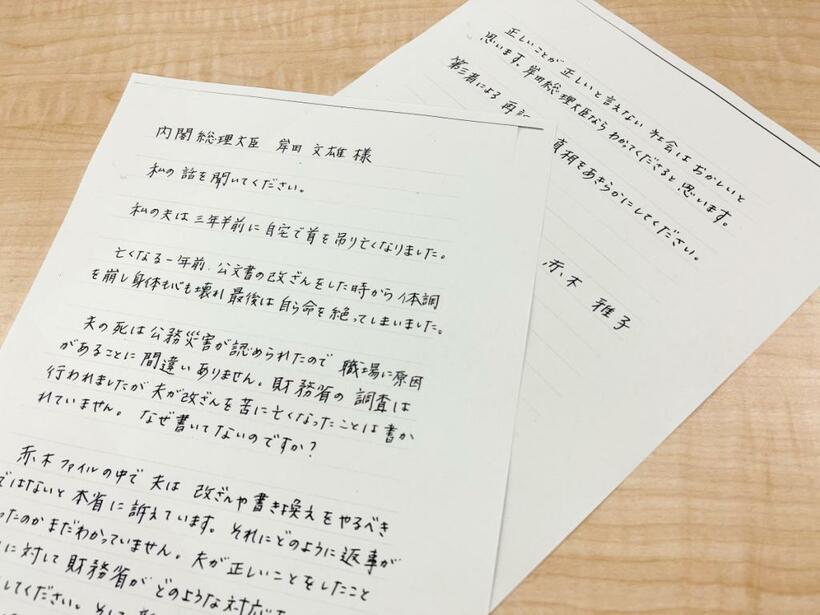 内閣総理大臣 岸田文雄様
私の話を聞いてください。
私の夫は三年半前に自宅で首を吊り亡くなりました。
亡くなる一年前、公文書の改ざんをした時から体調
を崩し身体も心も壊れ最後は自ら命を絶ってしまいました。
夫の死は公務災害が認められたので職場に原因
があることに間違いありません。財務省の調査は
行われましたが夫が改ざんを苦に亡くなったことは書か
れていません。なぜ書いてないのですか?
赤木ファイルの中で夫は改ざんや書き換えをやるべき
ではないと本省に訴えています。それにどのように返事が
ったのかまだわかっていません。夫が正しいことをしたこと
に対して財務省がどのような対応を
してください。そして
正しいことが正しいと言えない社会はおかしいと
思います。岸田総理大臣ならわかってくださると思います。
第三者による再
真相をあきらかにしてください。
赤木 雅子